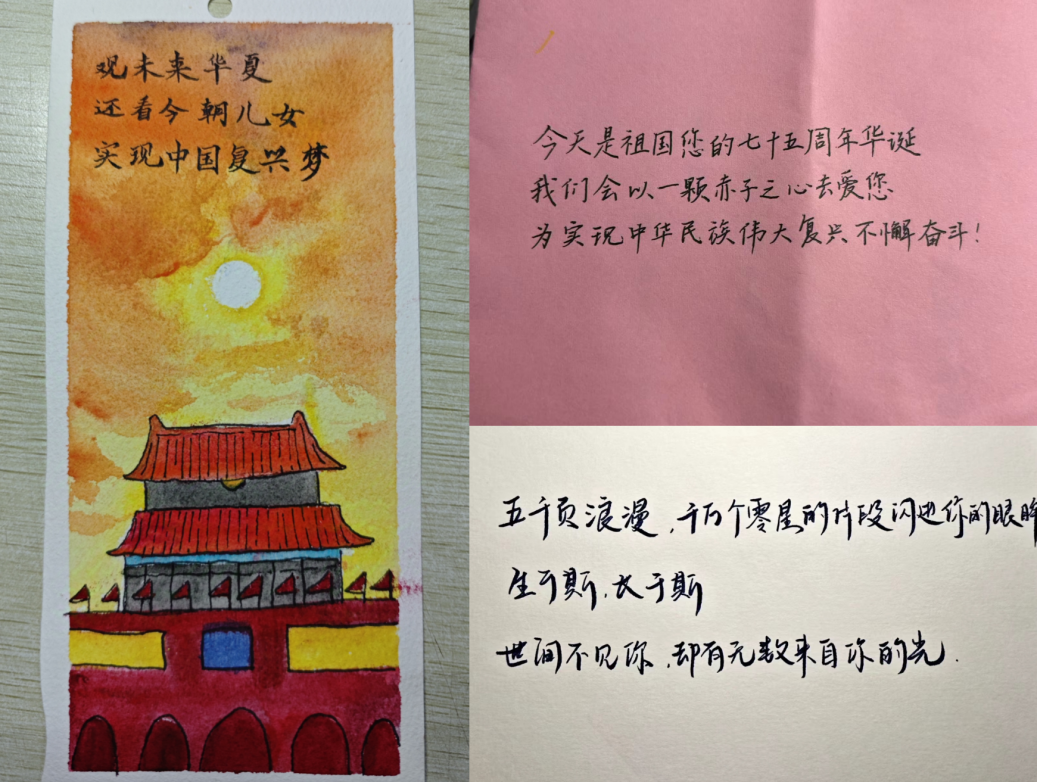 观未来华夏
还看今朝儿女
实现中国复兴梦
今天是祖国您的七十五周年华诞
我们会以一颗赤子之心去爱您
为实现中华民族伟大复兴不懈奋斗!
五千页浪漫,千万个零星的片段闪进你的眼眸
生于斯,长于斯
世间不见你,却有无数来自你的光.